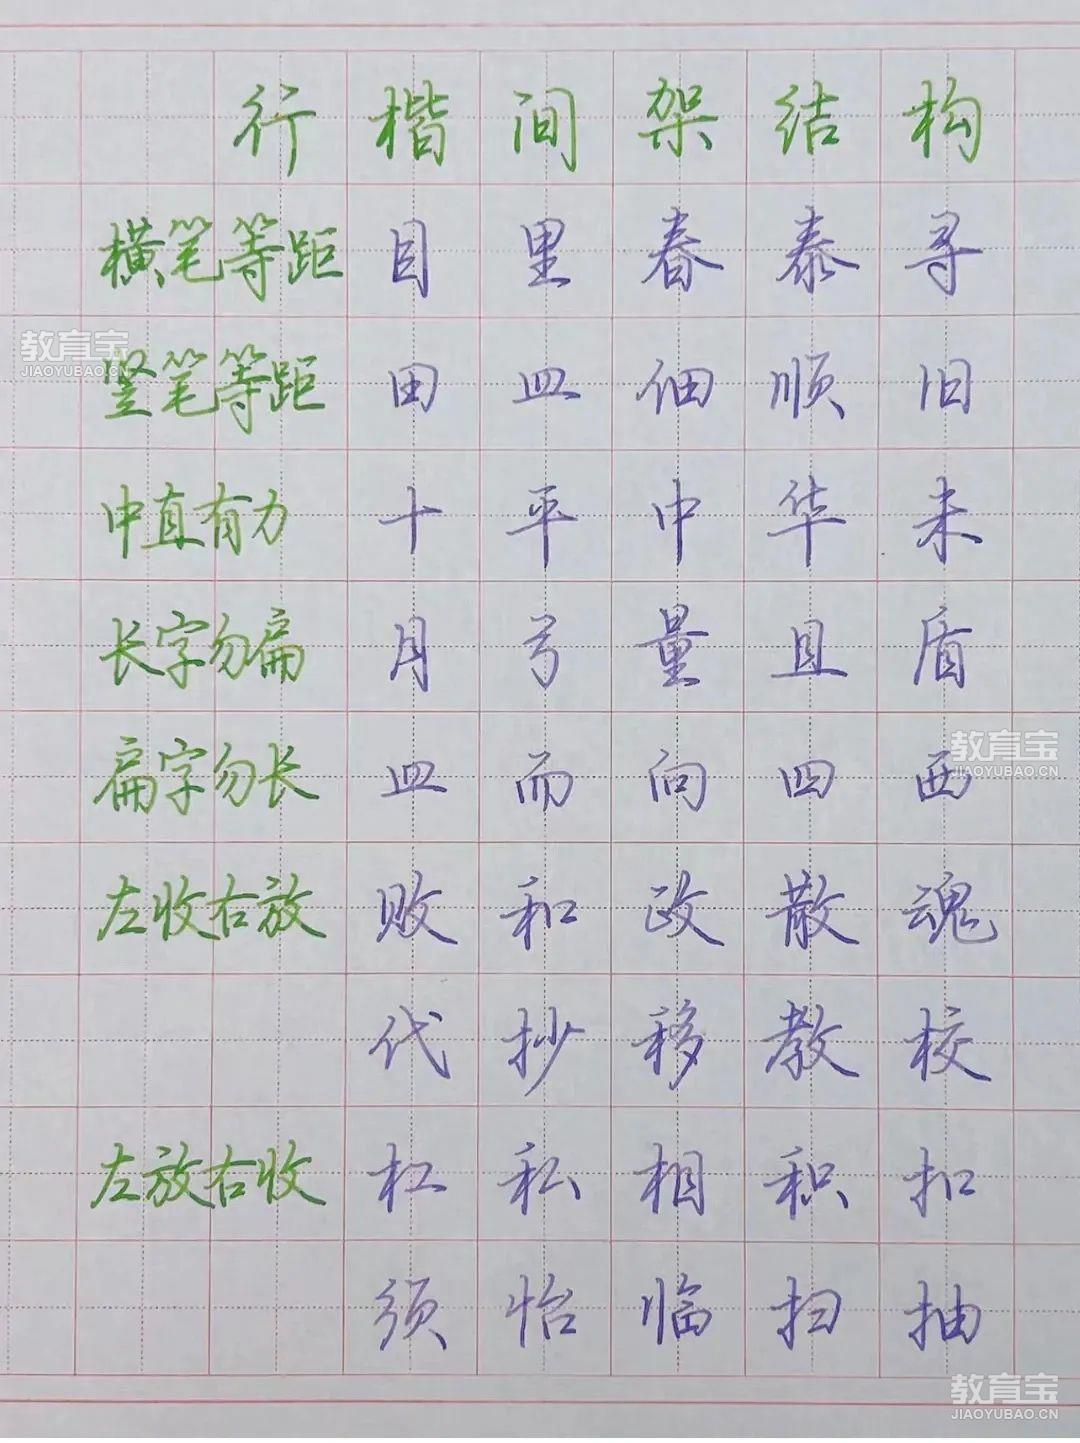 行楷间架结构
横笔等距 目 里 春 泰 寻
教育宝
JIAOYUBAO.CN
竖笔等距 田 皿 佃 顺 旧
中直有力 十 平 中 华 未
长字勿扁 月 弓 量 且 盾
教育宝
JIAOYUBAO.CN
扁字勿长 皿 而 向 四 西
左收右放 败 和 政 散 魂
代 抄 移 教 校
左放右收 杠 私 相 积 扣
须 怡 临 扫 抽
教育宝
JIAOYUBAO.CN